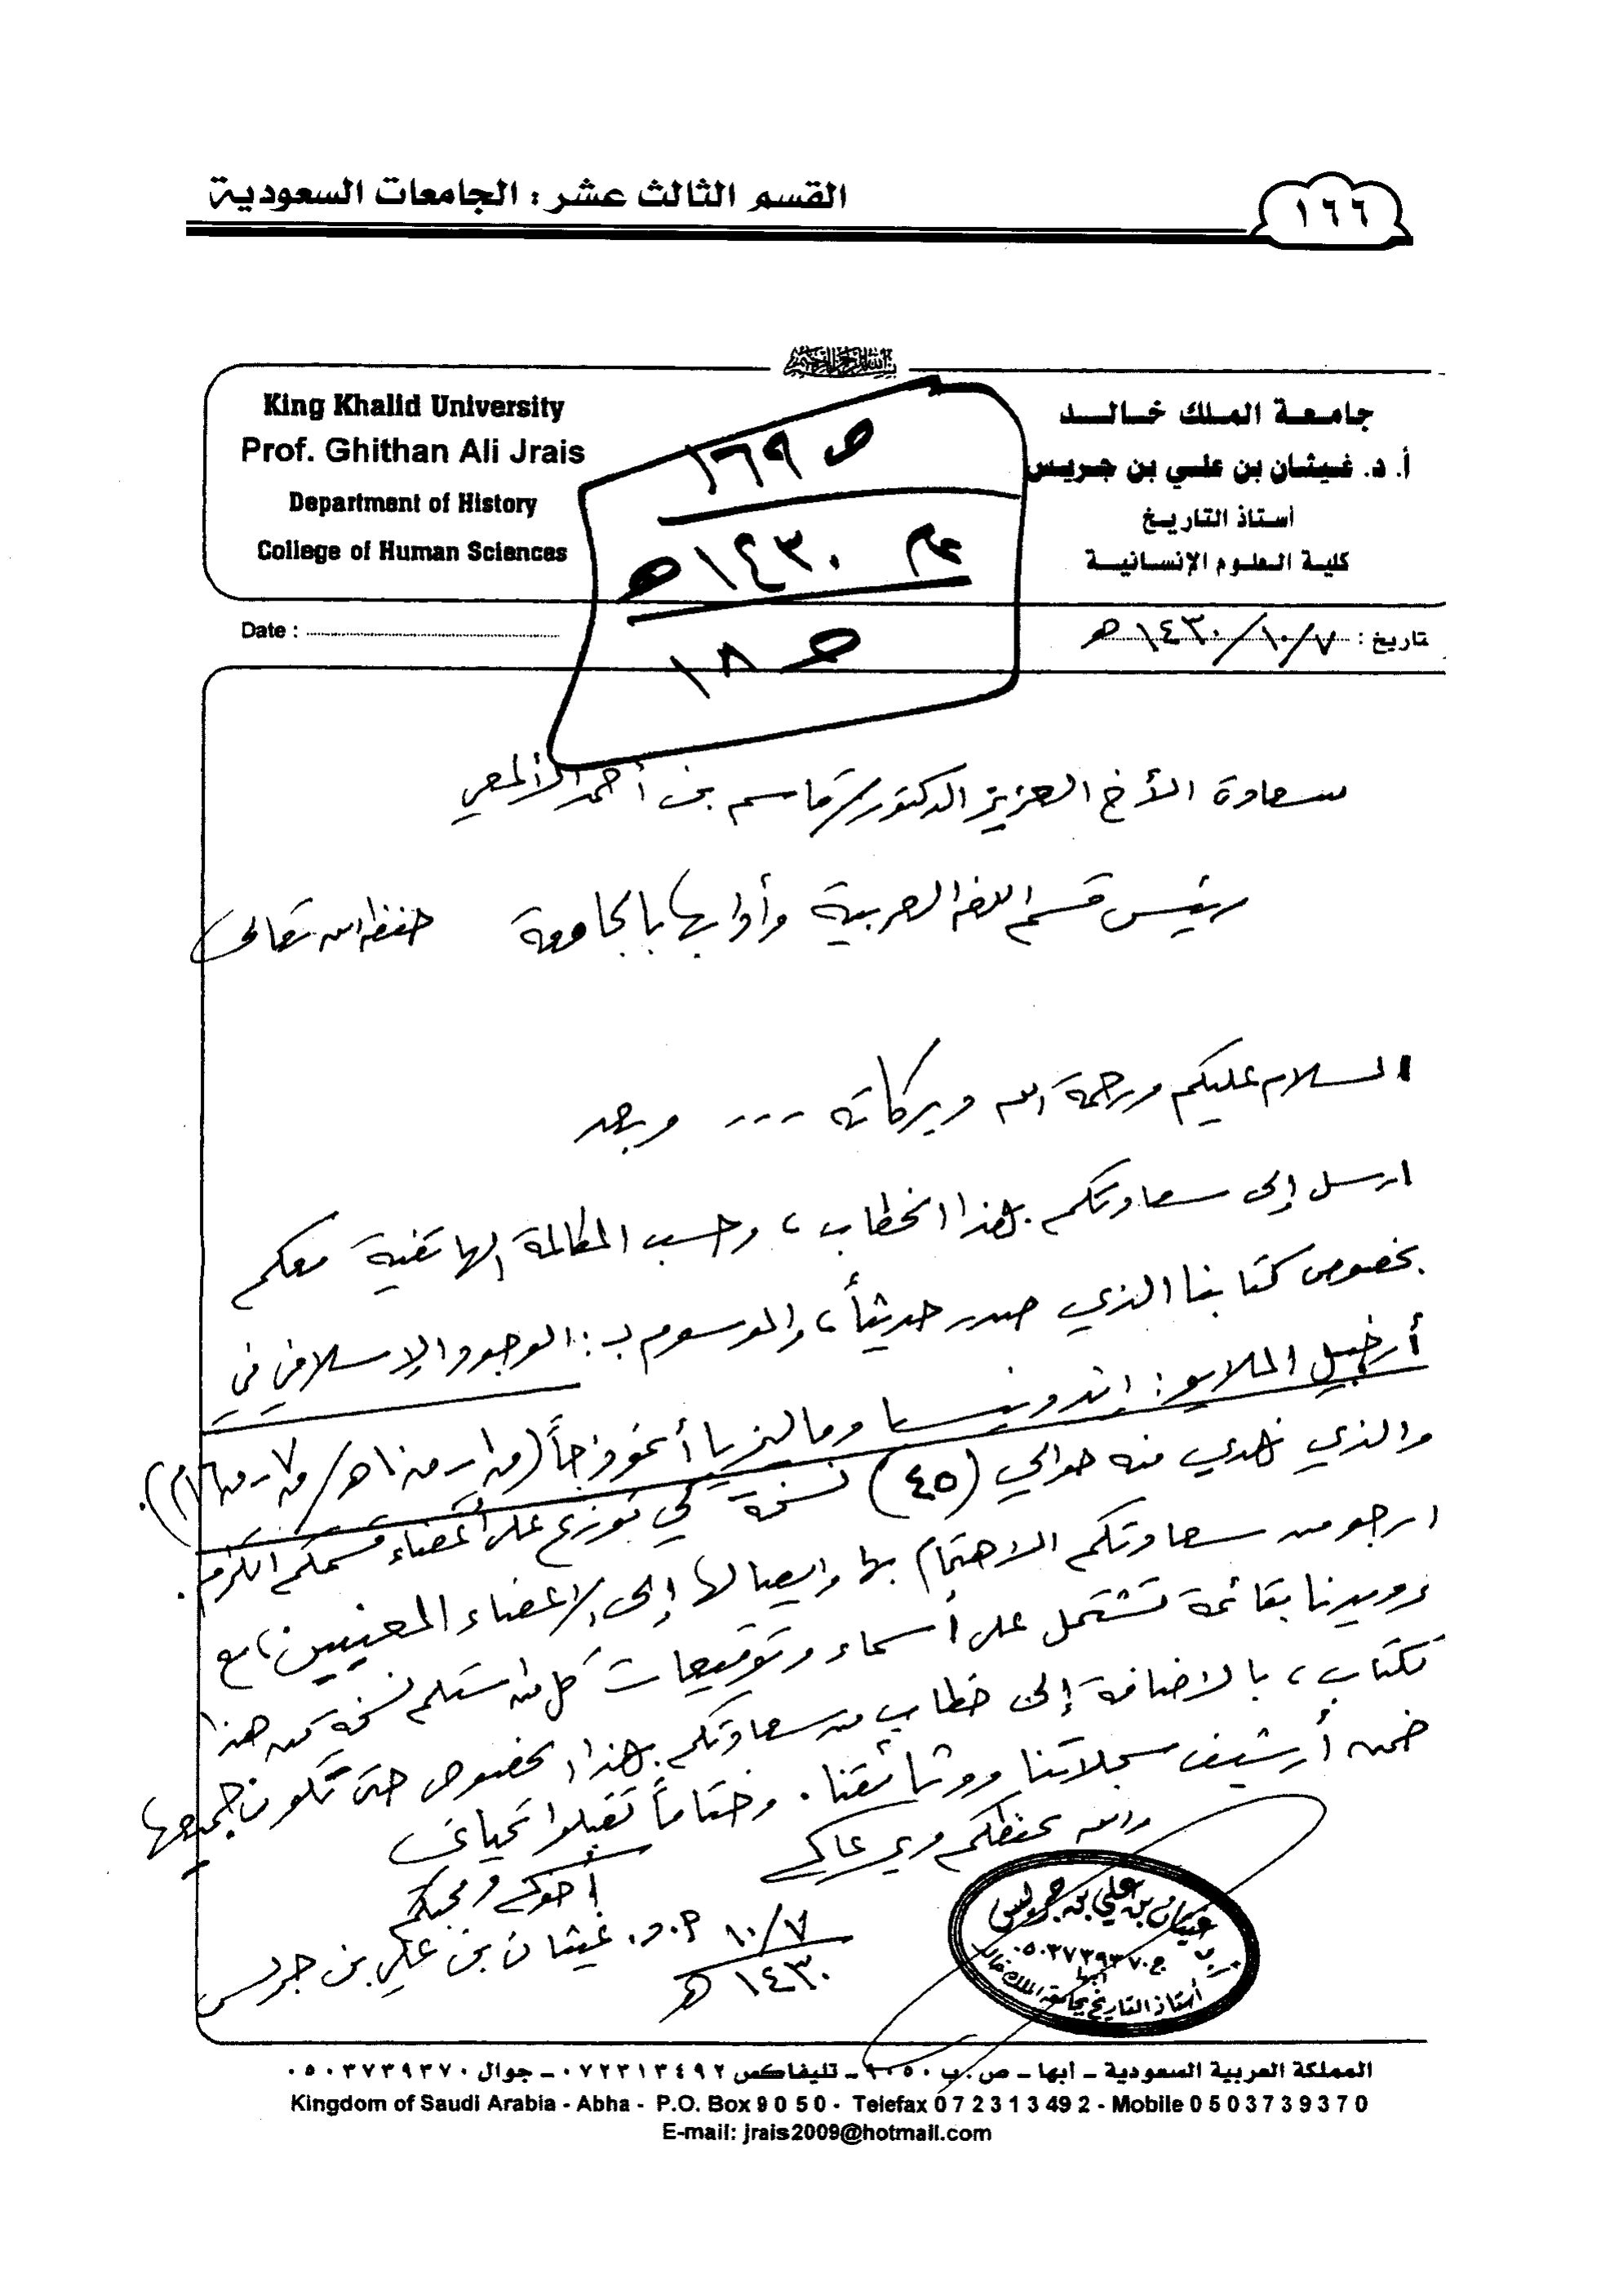 القسم الثالث عشر : الجامعات السعودية
١٦٦
King Khalid University
Prof. Ghithan Ali Jrais
Department of History
College of Human Sciences
جامعة الملك خالد
أ. د. غيثان بن علي بن جريس
أستاذ التاريخ
كلية العلوم الإنسانية
ص ١٦٩
عام ١٤٣٠ هـ
ص ١٨
Date :
تاريخ : ١٠/٧/ ١٤٣٠ هـ
سعادة الأخ العزيز الدكتور/ قاسم بن أحمد الألمعي
رئيس قسم اللغة العربية وأدابها بالجامعة حفظه الله تعالى
السلام عليكم ورحمة الله وبركاته --- وبعد
ارسل إلى سعادتكم بهذا الخطاب ، وحسب المكالمة الهاتفية معكم
بخصوص كتابنا الذي صدر حديثاً ، والموسوم بـ : الوجود الإسلامي في
أرخبيل الملايو : اندونيسيا وماليزيا أنموذجاً
والذي نهدي منه حوالي (٤٥) نسخة كي توزع على أعضاء قسمكم الكرام .
ارجو من سعادتكم الاهتمام بها وايصالها إلى الاعضاء المعنيين ، مع
تزويدنا بقائمة تشتمل على أسماء وتوقيعات كل من استلم نسخة من هذا
الكتاب ، بالاضافة إلى خطاب من سعادتكم بهذا الخصوص حتى تكون جميعها
ضمن أرشيف سجلاتنا ووثائقنا . وختاماً تقبلوا تحياتي
والله يحفظكم ويرعاكم
أخوكم ومحبكم
أ. د. غيثان بن علي بن جريس
١٠/٧
١٤٣٠ هـ
غيثان بن علي بن جريس
ج ٠٥٠٣٧٣٩٣٧٠
أبها
أستاذ التاريخ بجامعة الملك خالد
المملكة العربية السعودية ـ أبها ـ ص . ب ٩٠٥٠ ـ تليفاكس ٠٧٢٣١٣٤٩٢ ـ جوال ٠٥٠٣٧٣٩٣٧٠
Kingdom of Saudi Arabia - Abha - P.O. Box 9 0 5 0 - Telefax 0 7 2 3 1 3 49 2 - Mobile 0 5 0 3 7 3 9 3 7 0
E-mail: jrais2009@hotmail.com